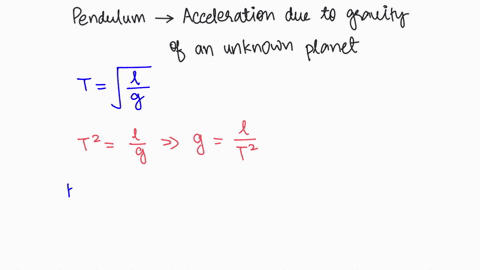 Pendulum → Acceleration due to gravity
of an unknown planet
T = √(l/g)
T² = l/g ⇒> g = l/T²